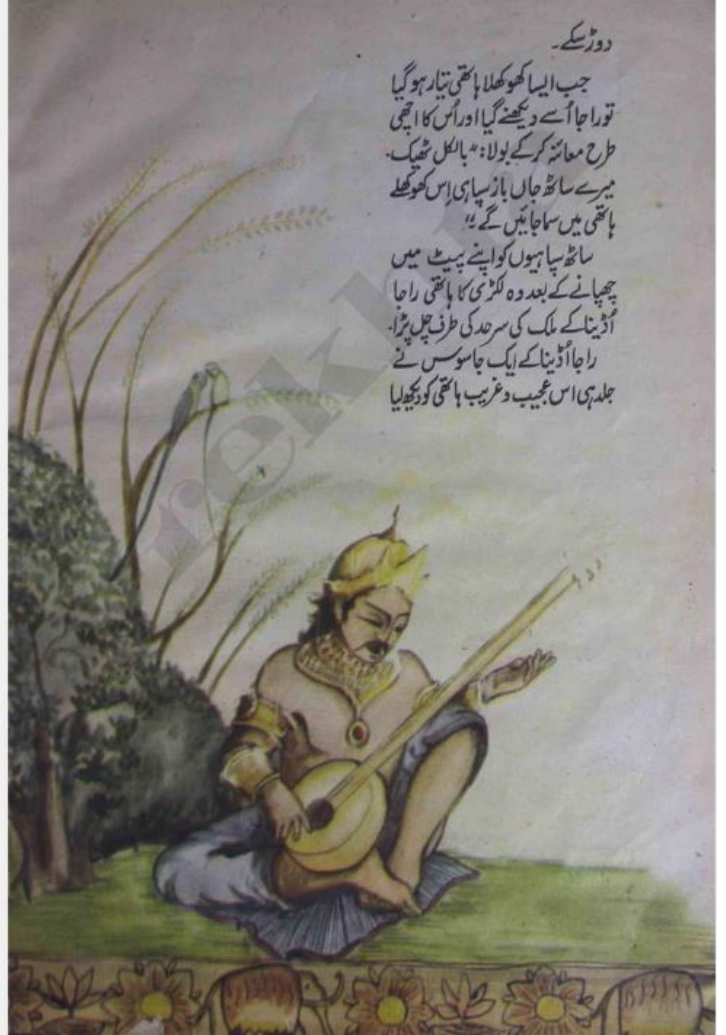 دوڑ سکے۔
جب ایسا کھوکھلا ہاتھی تیار ہو گیا
تو راجا اُسے دیکھنے گیا اور اُس کا اچھی
طرح معائنہ کر کے بولا: "بالکل ٹھیک۔
میرے ساٹھ جاں باز سپاہی اِس کھوکھلے
ہاتھی میں سما جائیں گے۔"
ساٹھ سپاہیوں کو اپنے پیٹ میں
چھپانے کے بعد وہ لکڑی کا ہاتھی راجا
اُڈینا کے ملک کی سرحد کی طرف چل پڑا۔
راجا اُڈینا کے ایک جاسوس نے
جلد ہی اس عجیب و غریب ہاتھی کو دیکھ لیا
rekhta